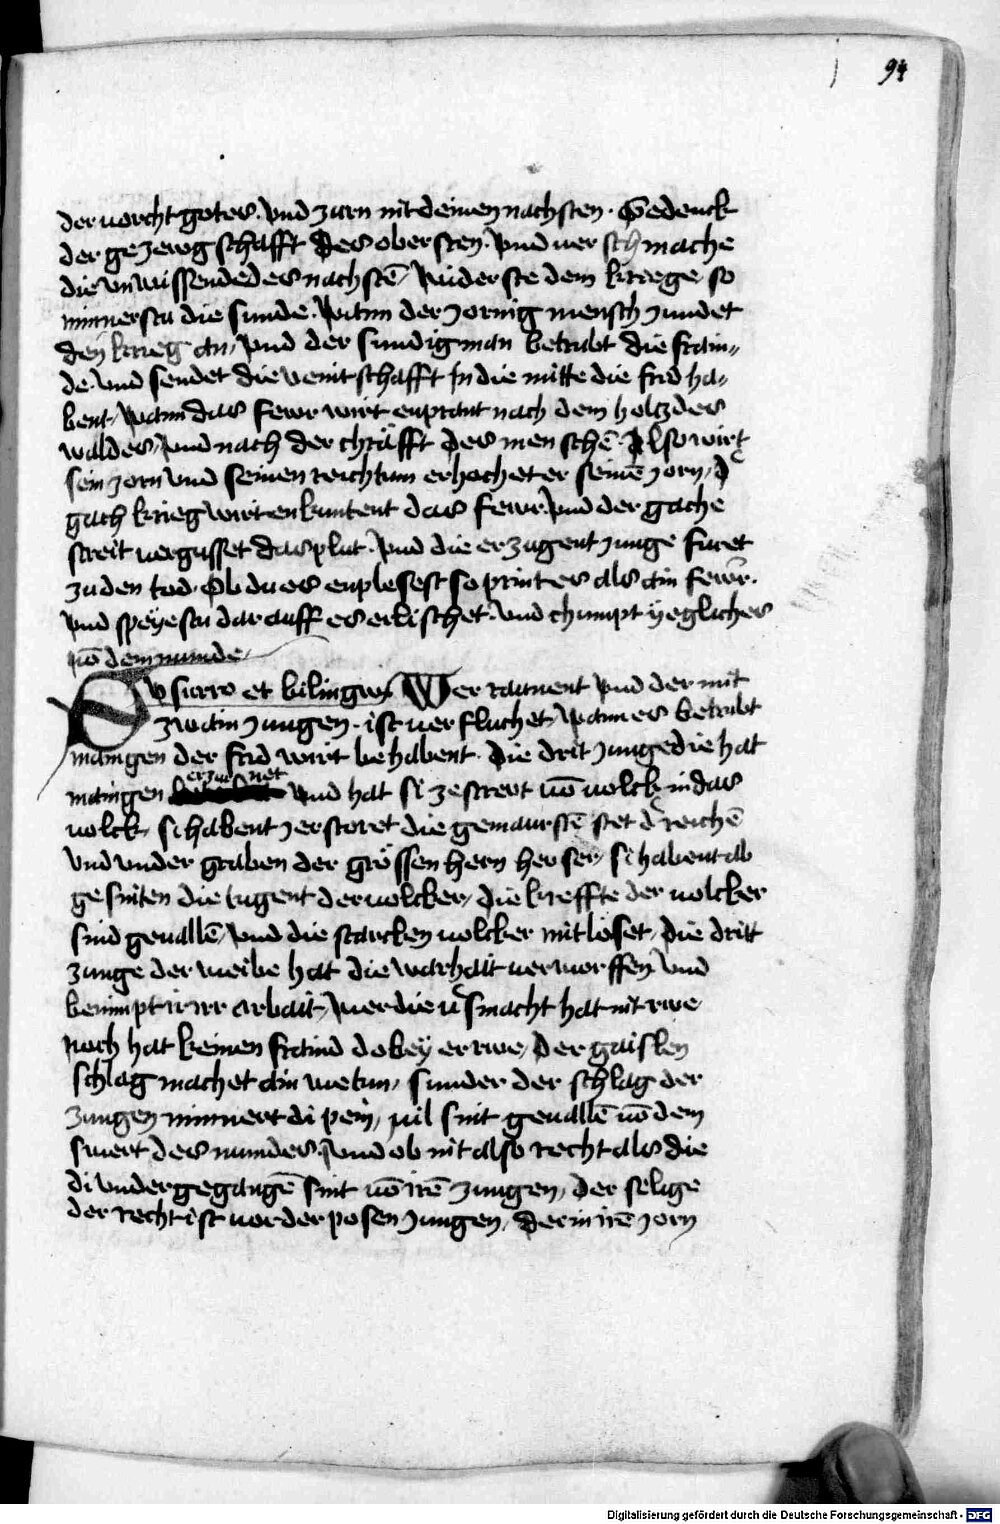 94
der vorcht gotes. vnd zürn nit deinen nachsten. Gedenck
der gezewgschafft des obersten. vnd verschmache
die vnwissende des nachstē, wider ste dem kriege, so
minnerstu die sunde. wann der zornig mensch zundet
den krieg an, vnd der sundig man betrubt die frain„
de. vnd sendet die veintschafft In die mitte die frid ha„
bent, wann das fewr wirt enprant nach dem holcz des
waldes, vnd nach der chräfft des menschē. Also wirt
sein zorn vnd seinen reichtum erhochet er seinē zorn, d
gach krieg wirt enkuntent das fewr. vnd der gache
streit vergusset das plut. vnd die erzugent zunge furet
zu den tod. Ob du es enplesest so printes als ain fewr.
vnd speyestu darauff es erlischet. vnd chumpt yegliches
vō dem munde,
Susurro et bilingwis Wer raunent vnd der mit
zwain zungen. ist verfluchet, wann es betrubt
maingen der frid wirt behabent. die drit zunge die hat
maingen erzurnet vnd hat si zestrert vō volck in das
volck, si habent zerstoret die gemaurstē stet d reichē
vnd vnder graben der grössen hern hewser, si habent ab
gesniten die tugent der volcker, die kreffte der volcker
sind geuallē, vnd die starcken volcker mitloset, die dritt
zunge der weibe hat die warhait verworffen vnd
benimpt ir irr arbait, wer die v̾smacht hat nit rwe
noch hat keinen fraind do bey er rwe, der gaislen
schlag machet ain wetun, sunder der schlag der
zungen minnert di pein, vil sint geuallē vō dem
swert des mundes. vnd ob nit also recht als die
di vndergegangē sint vō irē zungen, der selige
der recht ist vor der posen zungen, der in irē zorn
Digitalisierung gefördert durch die Deutsche Forschungsgemeinschaft - DFG